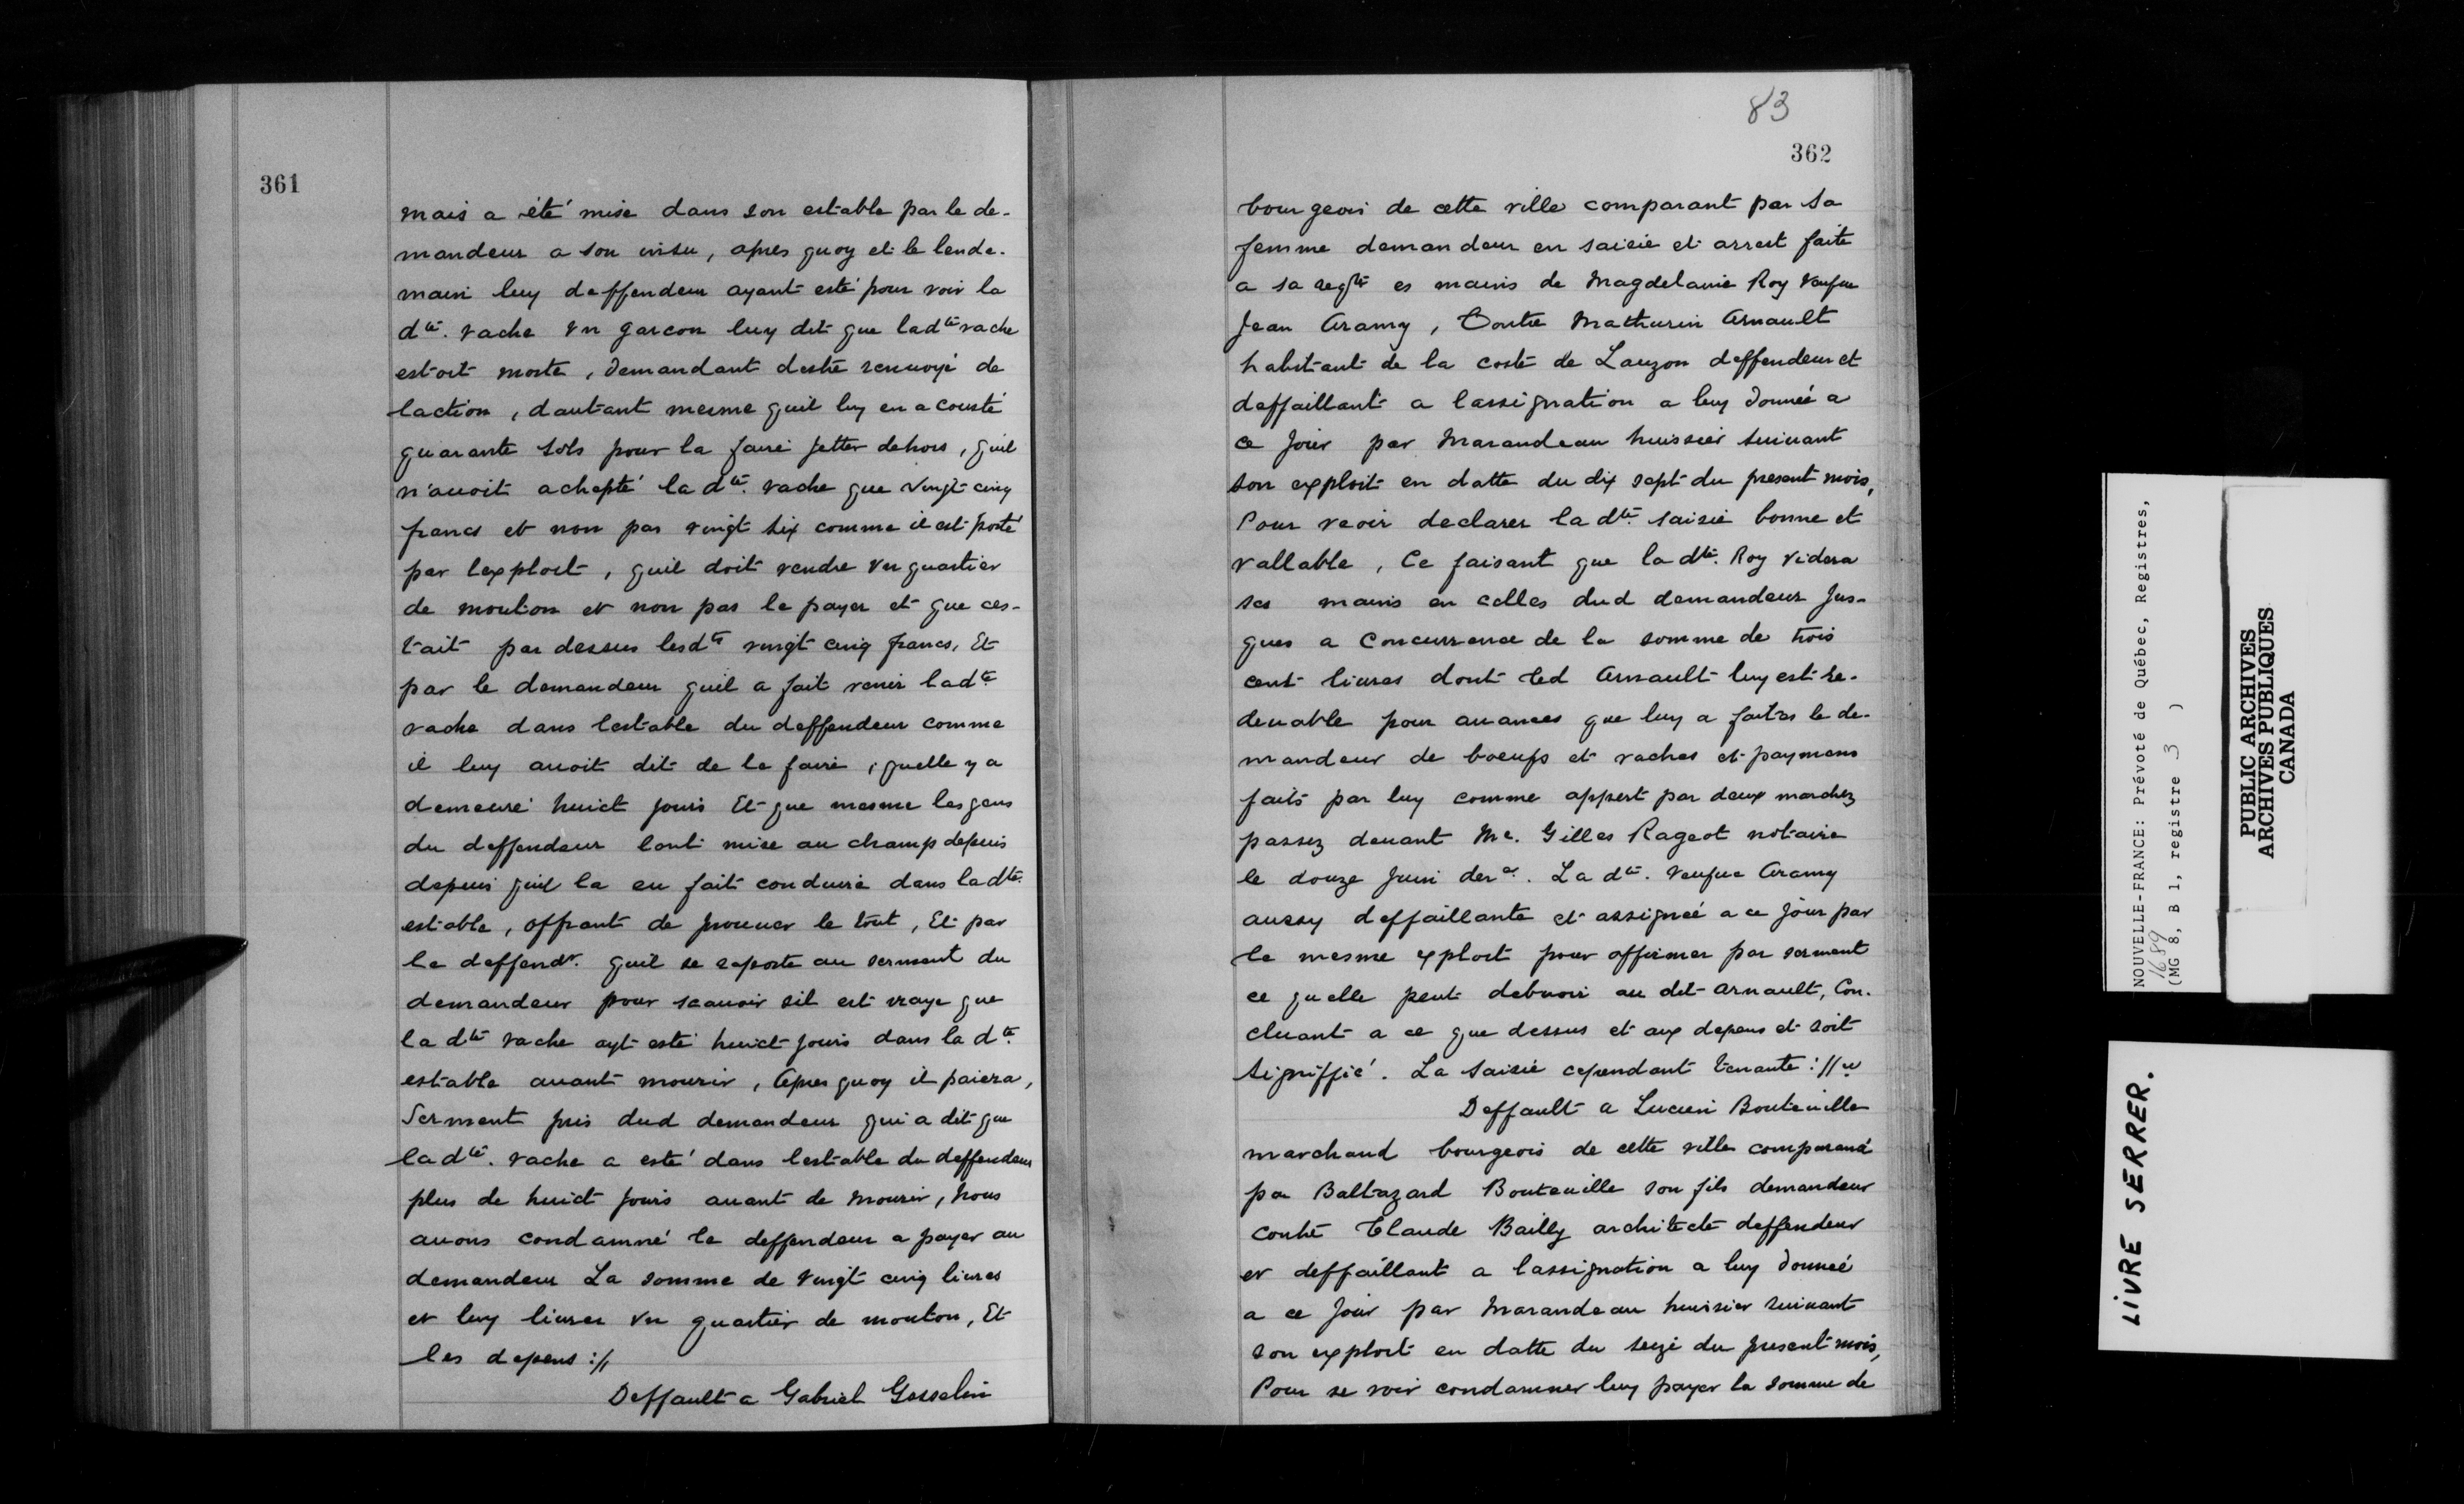 361
mais a été mise dans son estable par le de-
mandeur a son insu, apres quoy et le lende-
main luy deffendeur ayant esté pour voir la
dte. vache vn garcon luy dit que ladte vache
estoit morte, demandant destre renuoyé de
laction, dautant mesme quil luy en a cousté
quarante sols pour la faire jetter dehors, quil
n'auoit achepté la dte. vache que vingt cinq
francs et non pas vingt six comme il est porté
par lexploit, quil doit rendre vn quartier
de mouton et non pas le payer et que ces-
tait par dessus lesdts vingt cinq francs, Et
par le demandeur quil a fait venir ladte
vache dans lestable du deffendeur comme
il luy auoit dit de le faire, quelle y a
demeuré huict jours Et que mesme les gens
du deffendeur lont mise au champ depuis
depuis quil la eu fait conduire dans ladte.
estable, offrant de prouuer le tout, Et par
le deffendr. quil se raporte au serment du
demandeur pour scauoir sil est vraye que
la dte vache ayt esté huict jours dans la dte
estable auant mourir, Apres quoy il paiera,
Serment pris dud demandeur qui a dit que
la dte. vache a esté dans lestable du deffendeur
plus de huict jours auant de mourir, Nous
auons condamné le deffendeur a payer au
demandeur La somme de vingt cinq liures
et luy liurer vn quartier de mouton, Et
les depens ://
Deffault a Gabriel Gosselin
83
362
bourgeois de cette ville comparant par sa
femme demandeur en saisie et arrest faite
a sa reqte es mains de Magdelaine Roy veufue
Jean Aramy, Contre Mathurin Arnault
habitant de la coste de Lauzon deffendeur et
deffaillant a lassignation a luy donnée a
ce jour par Marandeau huissier suiuant
son exploit en datte du dix sept du present mois,
Pour veoir declarer la dte. saisie bonne et
vallable, Ce faisant que la dte. Roy videra
ses mains en celles dud demandeur jus-
ques a concurrence de la somme de trois
cent liures dont led Arnault luy est re-
deuable pour auances que luy a faites le de-
mandeur de boeufs et vaches et paymens
faits par luy comme appert par deux marchez
passez deuant Me. Gilles Rageot notaire
le douze juin der. La dte. veufue Aramy
aussy deffaillante et assignée a ce jour par
le mesme exploit pour affirmer par serment
ce quelle peut debuoir au dit Arnault, Con-
cluant a ce que dessus et aux depens et soit
signiffié. La saisie cependant tenante ://
Deffault a Lucien Bouteuille
marchand bourgeois de cette ville comparant
par Baltazard Bouteuille son fils demandeur
contre Claude Bailly architecte deffendeur
et deffaillant a lassignation a luy donnée
a ce jour par Marandeau huisier suiuant
son exploit en datte du seize du present mois,
Pour se voir condamner luy payer la somme de
NOUVELLE-FRANCE: Prévoté de Québec, Registres,
1689
(MG 8, B 1, registre 3 )
PUBLIC ARCHIVES
ARCHIVES PUBLIQUES
CANADA
LIVRE SERRER.